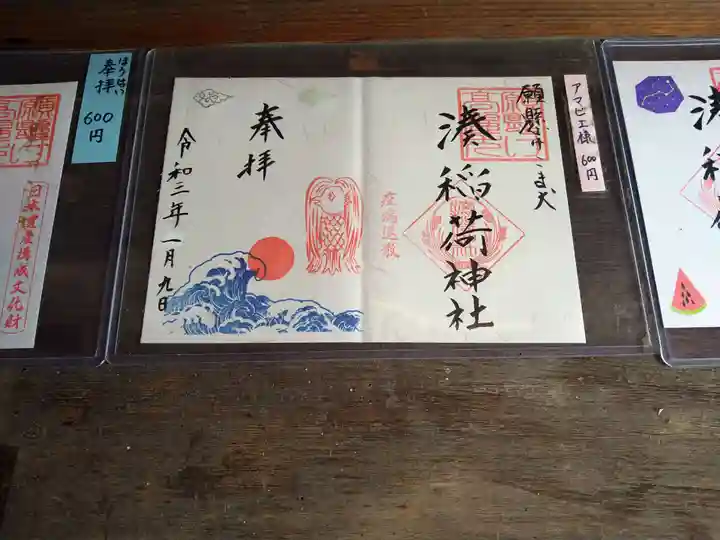 願懸けこま犬
湊稲荷神社
疫病退散
奉拝
令和三年一月九日
アマビエ様 600円
ほうはい
奉拝
600円
日本遺産構成文化財